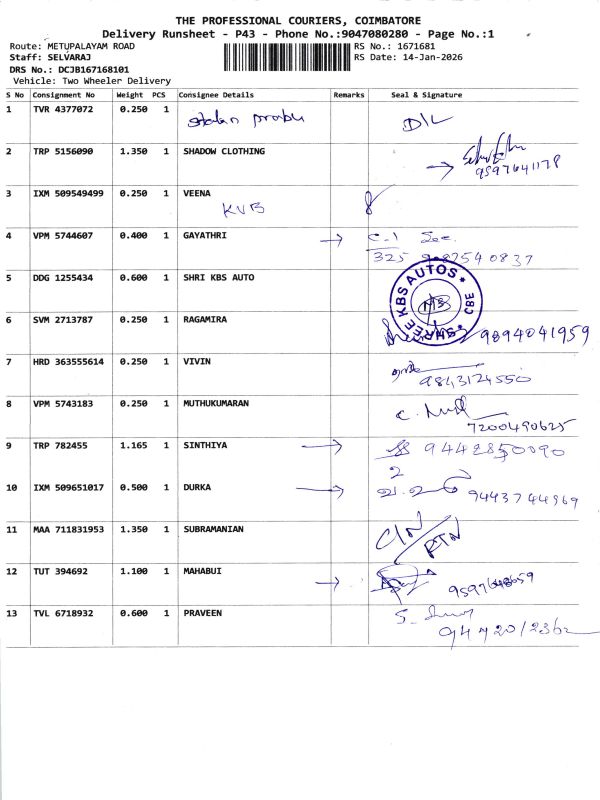 THE PROFESSIONAL COURIERS, COIMBATORE
Delivery Runsheet - P43 - Phone No.:9047080280 - Page No.:1
Route: METUPALAYAM ROAD RS No.: 1671681
Staff: SELVARAJ RS Date: 14-Jan-2026
DRS No.: DCJB167168101
Vehicle: Two Wheeler Delivery
S No Consignment No Weight PCS Consignee Details Remarks Seal & Signature
1 TVR 4377072 0.250 1 D/L
2 TRP 5156090 1.350 1 SHADOW CLOTHING
9597641178
3 IXM 509549499 0.250 1 VEENA
KVB
4 VPM 5744607 0.400 1 GAYATHRI → C-1 Sec.
325
5 DDG 1255434 0.600 1 SHRI KBS AUTO
SHREE KBS AUTOS * CBE *
6 SVM 2713787 0.250 1 RAGAMIRA 9894041959
7 HRD 363555614 0.250 1 VIVIN
9843124550
8 VPM 5743183 0.250 1 MUTHUKUMARAN
7200490625
9 TRP 782455 1.165 1 SINTHIYA → 9442850090
10 IXM 509651017 0.500 1 DURKA → 9443744969
11 MAA 711831953 1.350 1 SUBRAMANIAN C/N/RTN
12 TUT 394692 1.100 1 MAHABUI →
13 TVL 6718932 0.600 1 PRAVEEN